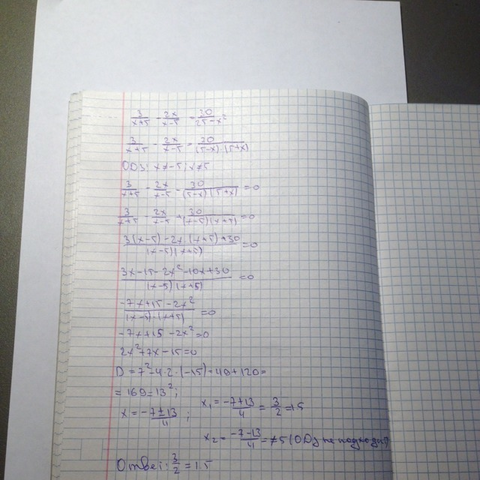 3/(x+5) - 2x/(x-5) = 30/(25-x²)
3/(x+5) - 2x/(x-5) = 30/((5-x)(5+x))
ODЗ: x≠-5; x≠5
3/(x+5) - 2x/(x-5) - 30/((5-x)(5+x)) = 0
3/(x+5) - 2x/(x-5) + 30/((x-5)(x+5)) = 0
(3(x-5) - 2x·(x+5) + 30)/((x-5)(x+5)) = 0
(3x - 15 - 2x² - 10x + 30)/((x-5)(x+5)) = 0
(-7x + 15 - 2x²)/((x-5)·(x+5)) = 0
-7x + 15 - 2x² = 0
2x² + 7x - 15 = 0
D = 7² - 4·2·(-15) = 49 + 120 =
= 169 = 13²;
x = (-7±13)/4; x₁ = (-7+13)/4 = 3/2 = 1.5
x₂ = (-7-13)/4 = -5 (ODЗ не подходит)
Ответ: 3/2 = 1.5